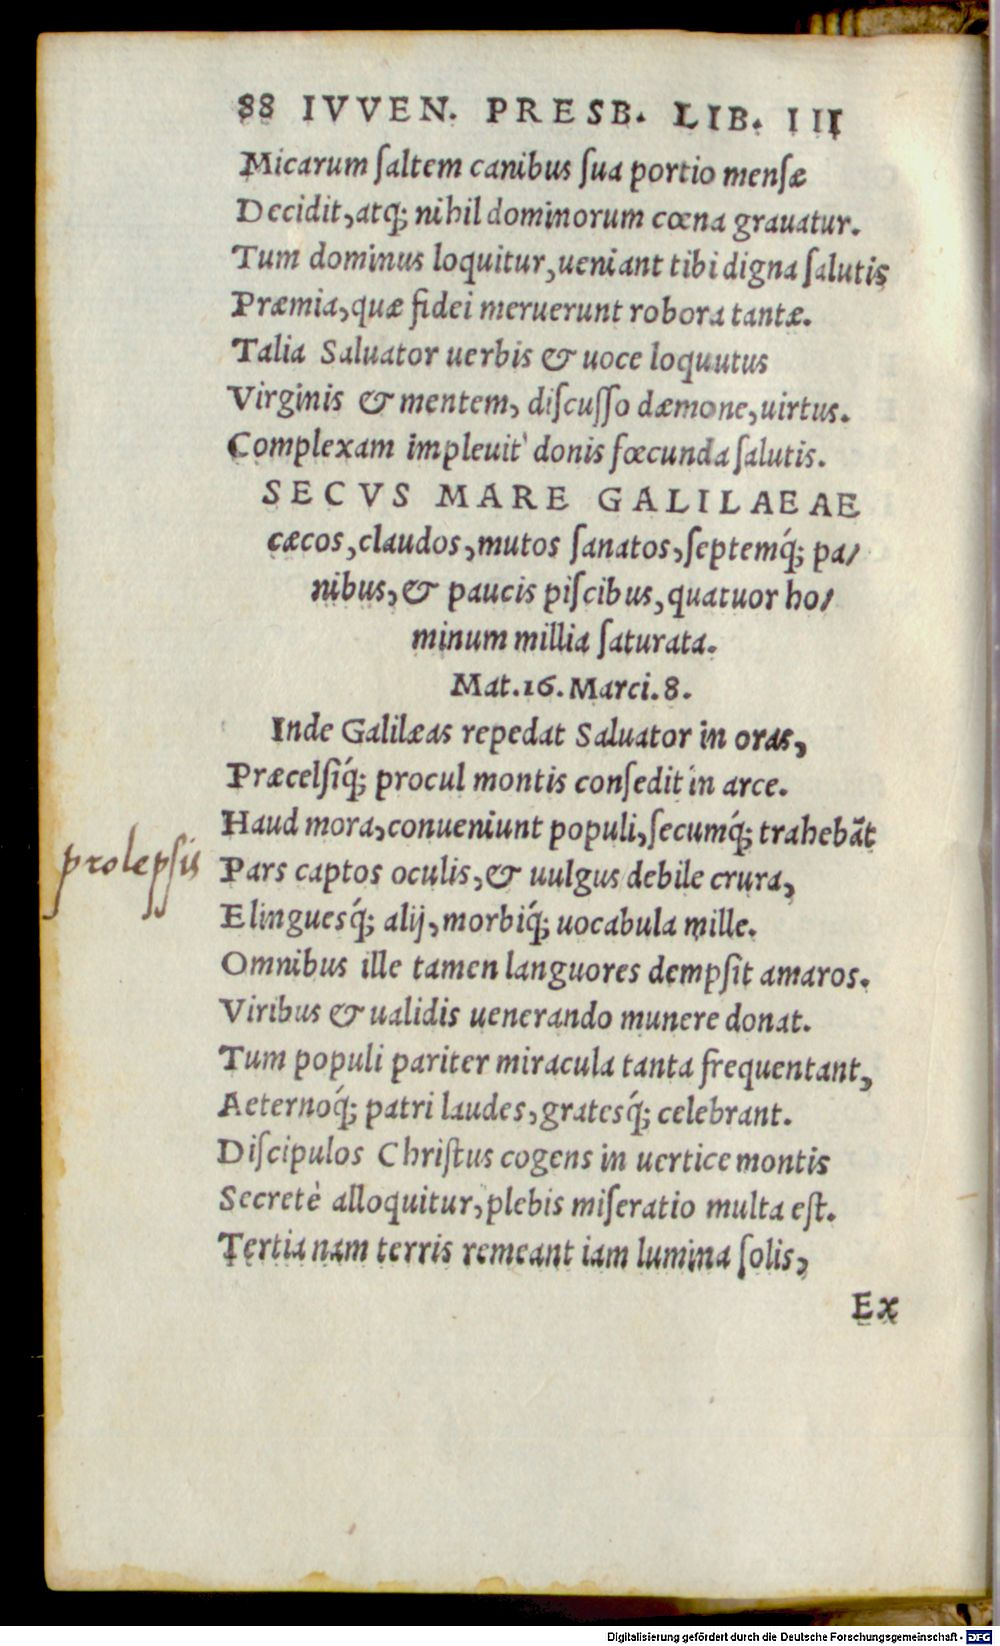 88 IVVEN. PRESB. LIB. III
Micarum ſaltem canibus ſua portio menſæ
Decidit, atq; nihil dominorum cœna grauatur.
Tum dominus loquitur, ueniant tibi digna ſalutis
Præmia, quæ fidei meruerunt robora tantæ.
Talia Saluator uerbis & uoce loquutus
Virginis & mentem, diſcuſſo dæmone, uirtus.
Complexam impleuit donis fœcunda ſalutis.
SECVS MARE GALILAEAE
cæcos, claudos, mutos ſanatos, ſeptemq́; pa/
nibus, & paucis piſcibus, quatuor ho/
minum millia ſaturata.
Mat. 16. Marci. 8.
Inde Galilæas repedat Saluator in oras,
Præcelſiq́; procul montis conſedit in arce.
Haud mora, conueniunt populi, ſecumq́; trahebāt
prolepſis
Pars captos oculis, & uulgus debile crura,
Elinguesq́; alij, morbiq́; uocabula mille.
Omnibus ille tamen languores dempſit amaros.
Viribus & ualidis uenerando munere donat.
Tum populi pariter miracula tanta frequentant,
Aeternoq́; patri laudes, gratesq́; celebrant.
Diſcipulos Chriſtus cogens in uertice montis
Secretè alloquitur, plebis miſeratio multa eſt.
Tertia nam terris remeant iam lumina ſolis,
Ex
Digitalisierung gefördert durch die Deutsche Forschungsgemeinschaft - DFG